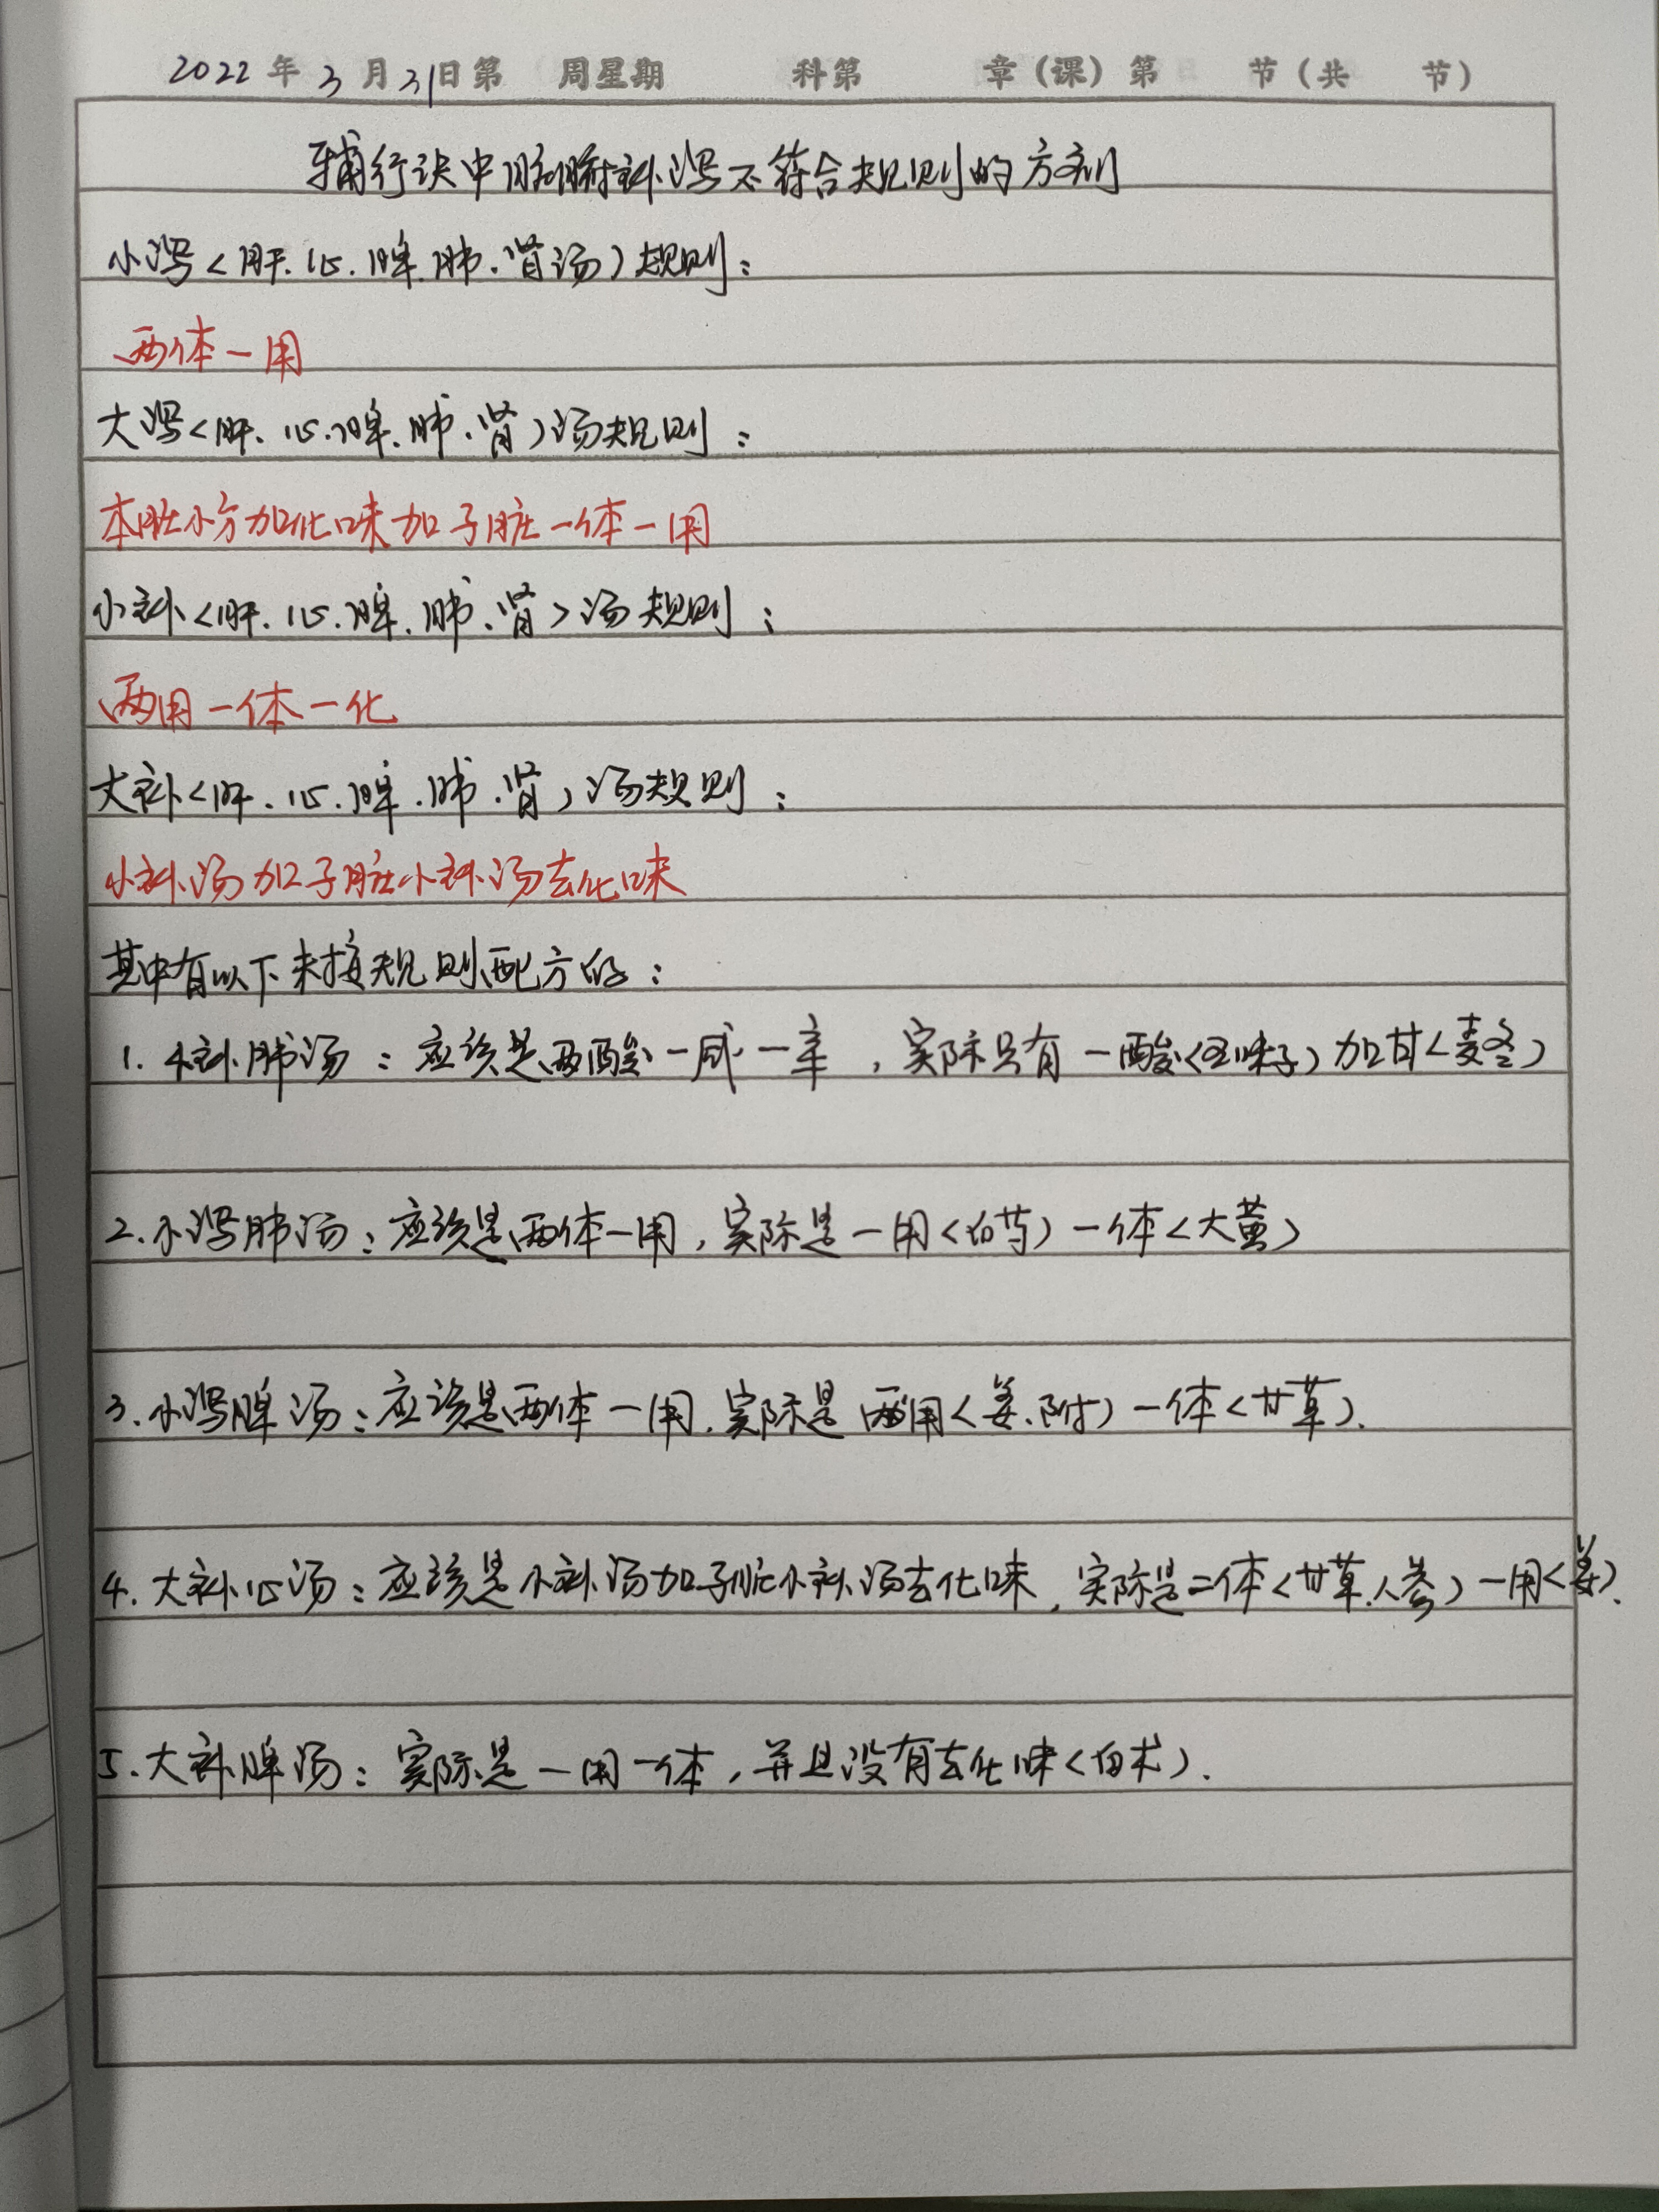 2022 年 3 月 31 日 第 周星期 科第 章（课）第 节（共 节）
辅行诀中脏腑补泻不符合规则的方剂
小泻<肝.心.脾.肺.肾汤>规则：
两体一用
大泻<肝.心.脾.肺.肾>汤规则：
本脏小方加化味加子脏一体一用
小补<肝.心.脾.肺.肾>汤规则：
两用一体一化
大补<肝.心.脾.肺.肾>汤规则：
小补汤加子脏小补汤去化味
其中有以下未按规则配方的：
1.小补肺汤：应该是两酸一咸一辛，实际只有一酸<五味子>加甘<麦冬>
2.小泻肺汤：应该是两体一用，实际是一用<白芍>一体<大黄>
3.小泻脾汤：应该是两体一用.实际是两用<姜.附>一体<甘草>.
4.大补心汤：应该是小补汤加子脏小补汤去化味，实际是二体<甘草.人参>一用<姜>.
5.大补脾汤：实际是一用一体，并且没有去化味<白术>.